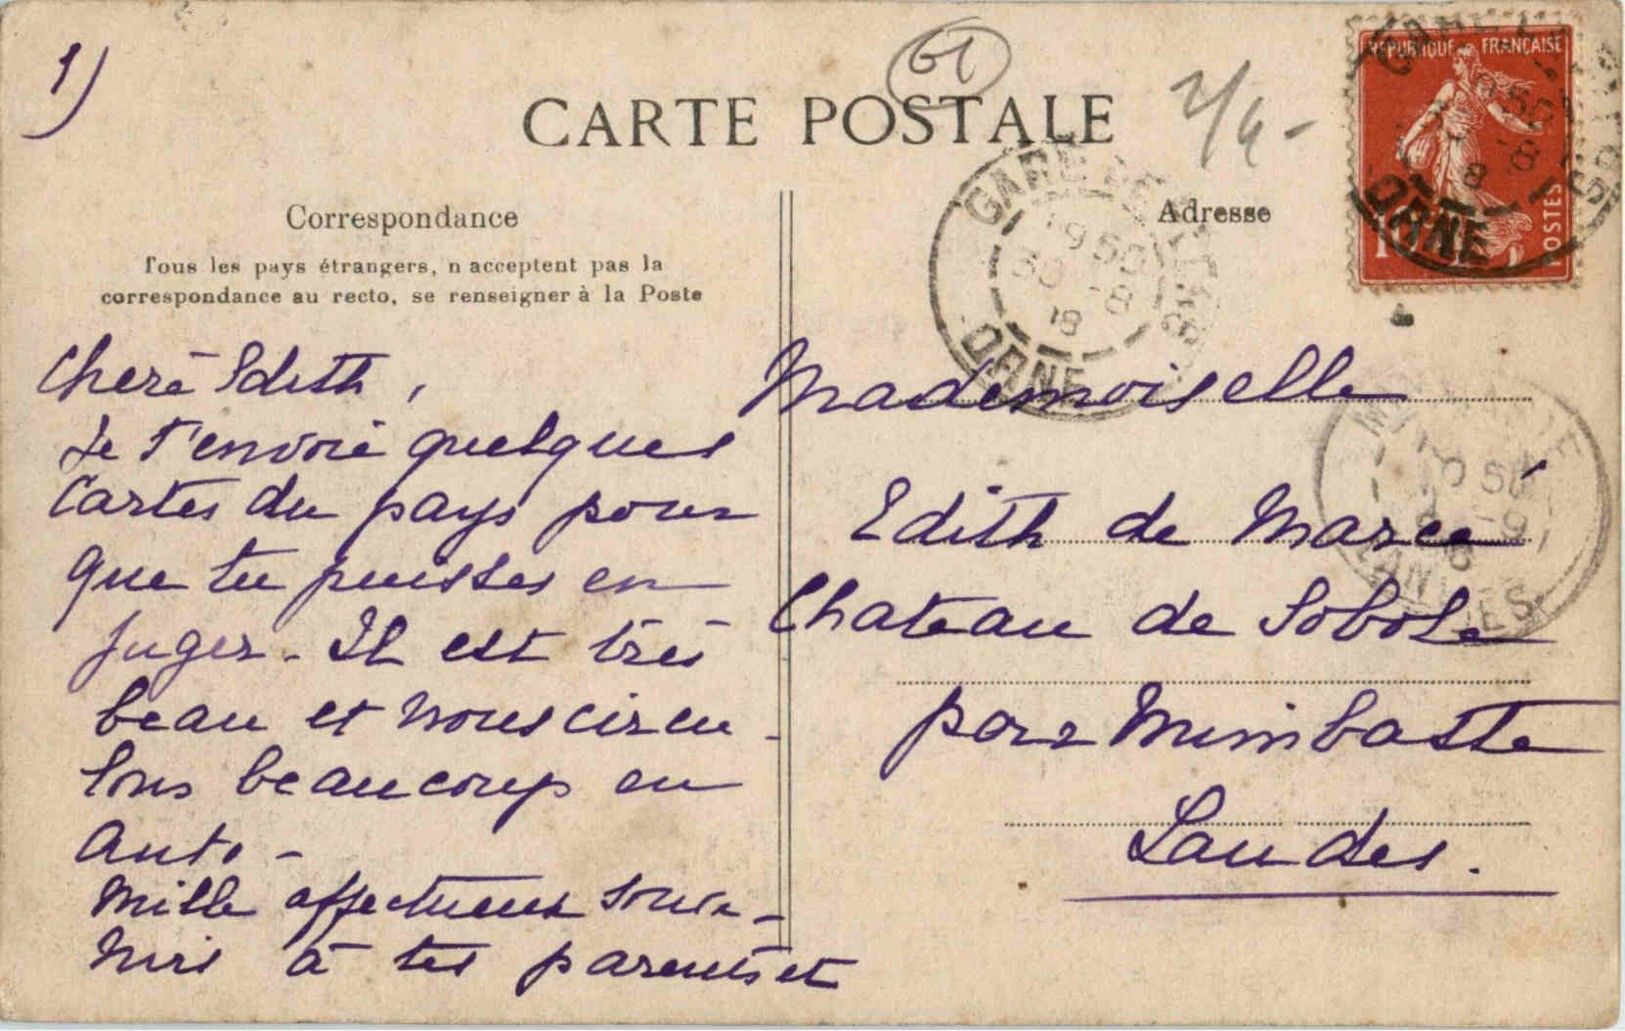 1)
61
2/4-
CARTE POSTALE
RÉPUBLIQUE FRANÇAISE
POSTES
10
ORNE
Correspondance
Tous les pays étrangers, n acceptent pas la
correspondance au recto, se renseigner à la Poste
Chère Edith,
Je t'envoie quelques
cartes du pays pour
que tu puisses en
juger. Il est très
beau et nous circu-
lons beaucoup en
auto -
Mille affectueux souve-
nirs à tes parents et
Adresse
GARE DE
19 50
30 -8
ORNE
Mademoiselle
Edith de Marcé
Chateau de Sobole
par Mimbaste
Landes.
LANDES